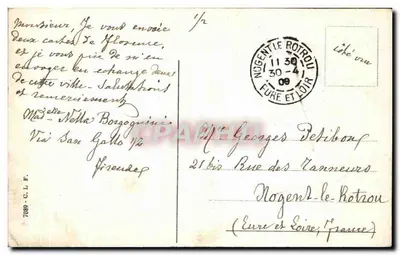 Monsieur, Je vous envoie
deux cartes de Florence,
et je vous prie de m'en
envoyer en echange deux
de votre ville - Salutations
et remerciements
Mad.elle Netta Borgognini
Via San Gallo 1/2
Firenze
1/2
NOGENT LE ROTROU
11 30
30-4
09
EURE ET LOIR
côté vue
Mr Georges Petibon
21 bis Rue des Tanneurs
Nogent-le-Rotrou
(Eure et Loire, France)
7089 - C. L. F.